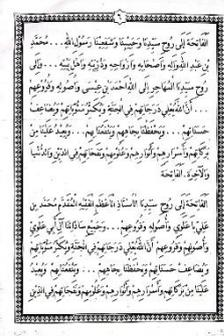 ٦
الْفَاتِحَةَ إِلَى رُوحِ سَيِّدِنَا وَحَبِيبِنَا وَشَفِيعِنَا رَسُولِ اللهِ ... مُحَمَّدِ
بْنِ عَبْدِ اللهِ وَآلِهِ وَأَصْحَابِهِ وَأَزْوَاجِهِ وَذُرِّيَّتِهِ وَأَهْلِ بَيْتِهِ ... وَإِلَى
رُوحِ سَيِّدِنَا الْمُهَاجِرِ إِلَى اللهِ أَحْمَدَ بْنِ عِيسَى وَأُصُولِهِ وَفُرُوعِهِمْ
... أَنَّ اللهَ يُعْلِي دَرَجَاتِهِمْ فِي الْجَنَّةِ وَيُكَثِّرُ مَثُوبَاتِهِمْ وَيُضَاعِفُ
حَسَنَاتِهِمْ ... وَيَحْفَظُنَا بِجَاهِهِمْ وَيَنْفَعُنَا بِهِمْ ... وَيُعِيدُ عَلَيْنَا مِنْ
بَرَكَاتِهِمْ وَأَسْرَارِهِمْ وَأَنْوَارِهِمْ وَعُلُومِهِمْ وَنَفَحَاتِهِمْ فِي الدِّينِ وَالدُّنْيَا
وَالْآخِرَةِ. الْفَاتِحَةَ
الْفَاتِحَةَ إِلَى رُوحِ سَيِّدِنَا الْأُسْتَاذِ الْأَعْظَمِ الْفَقِيهِ الْمُقَدَّمِ مُحَمَّدِ بْنِ
عَلِيٍّ بَاعَلَوِي وَأُصُولِهِ وَفُرُوعِهِمْ ... وَجَمِيعِ سَادَاتِنَا آلِ أَبِي عَلَوِي
وَأُصُولِهِمْ وَفُرُوعِهِمْ أَنَّ اللهَ يُعْلِي دَرَجَاتِهِمْ فِي الْجَنَّةِ وَيُكَثِّرُ مَثُوبَاتِهِمْ
وَيُضَاعِفُ حَسَنَاتِهِمْ وَيَحْفَظُنَا بِجَاهِهِمْ ... وَيَنْفَعُنَا بِهِمْ وَيُعِيدُ
عَلَيْنَا مِنْ بَرَكَاتِهِمْ وَأَسْرَارِهِمْ وَأَنْوَارِهِمْ وَعُلُومِهِمْ وَنَفَحَاتِهِمْ فِي الدِّينِ